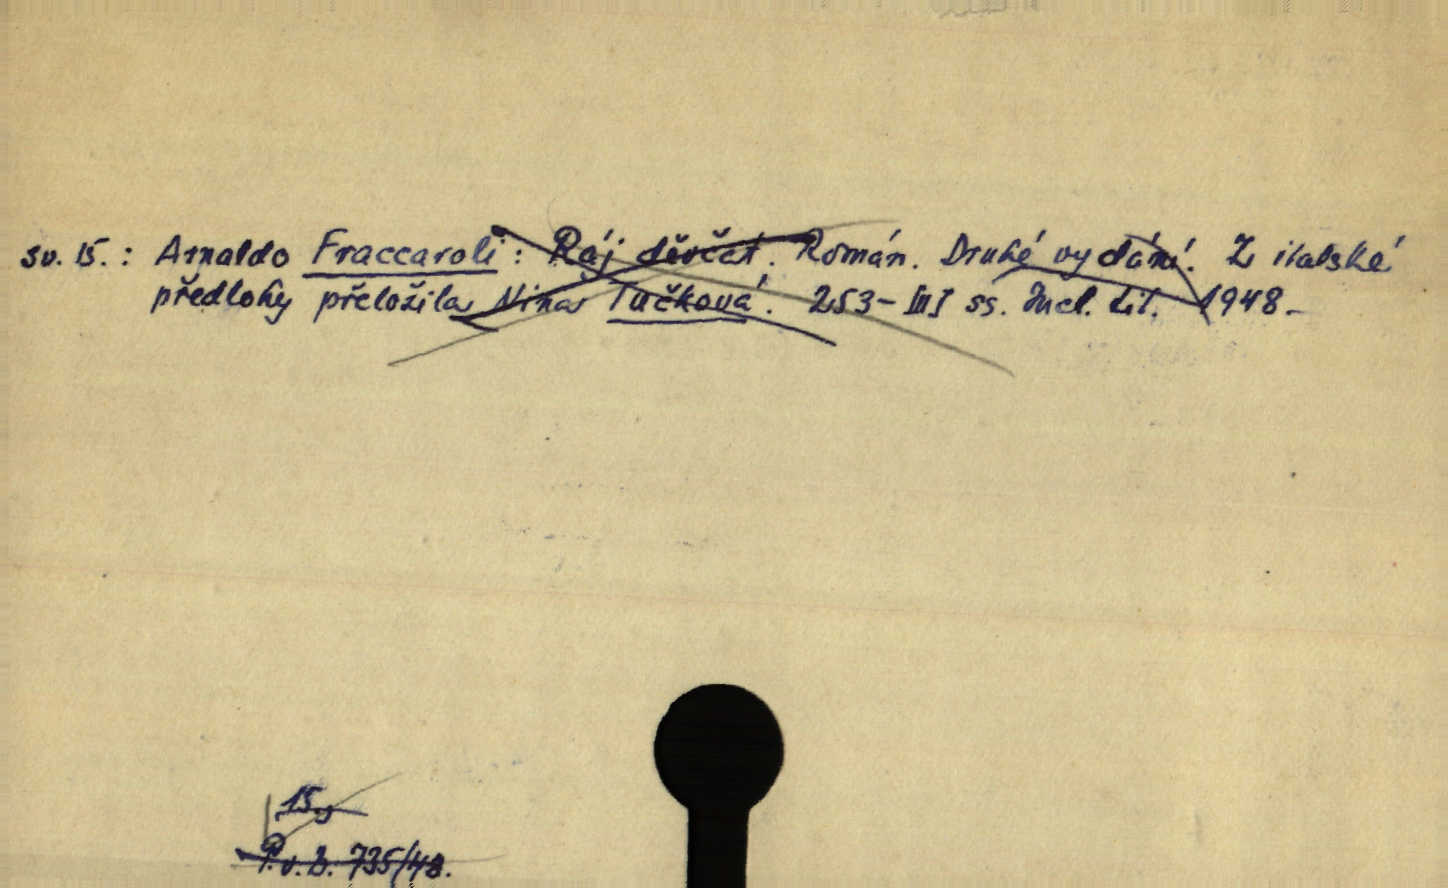 sv. 15. : Arnaldo Fraccaroli : Ráj děvčat. Román. Druhé vydání. Z italské
předlohy přeložila Nina Tučková. 253-III ss. Incl. tit. 1948.-
15,
P.v.b. 735/48.